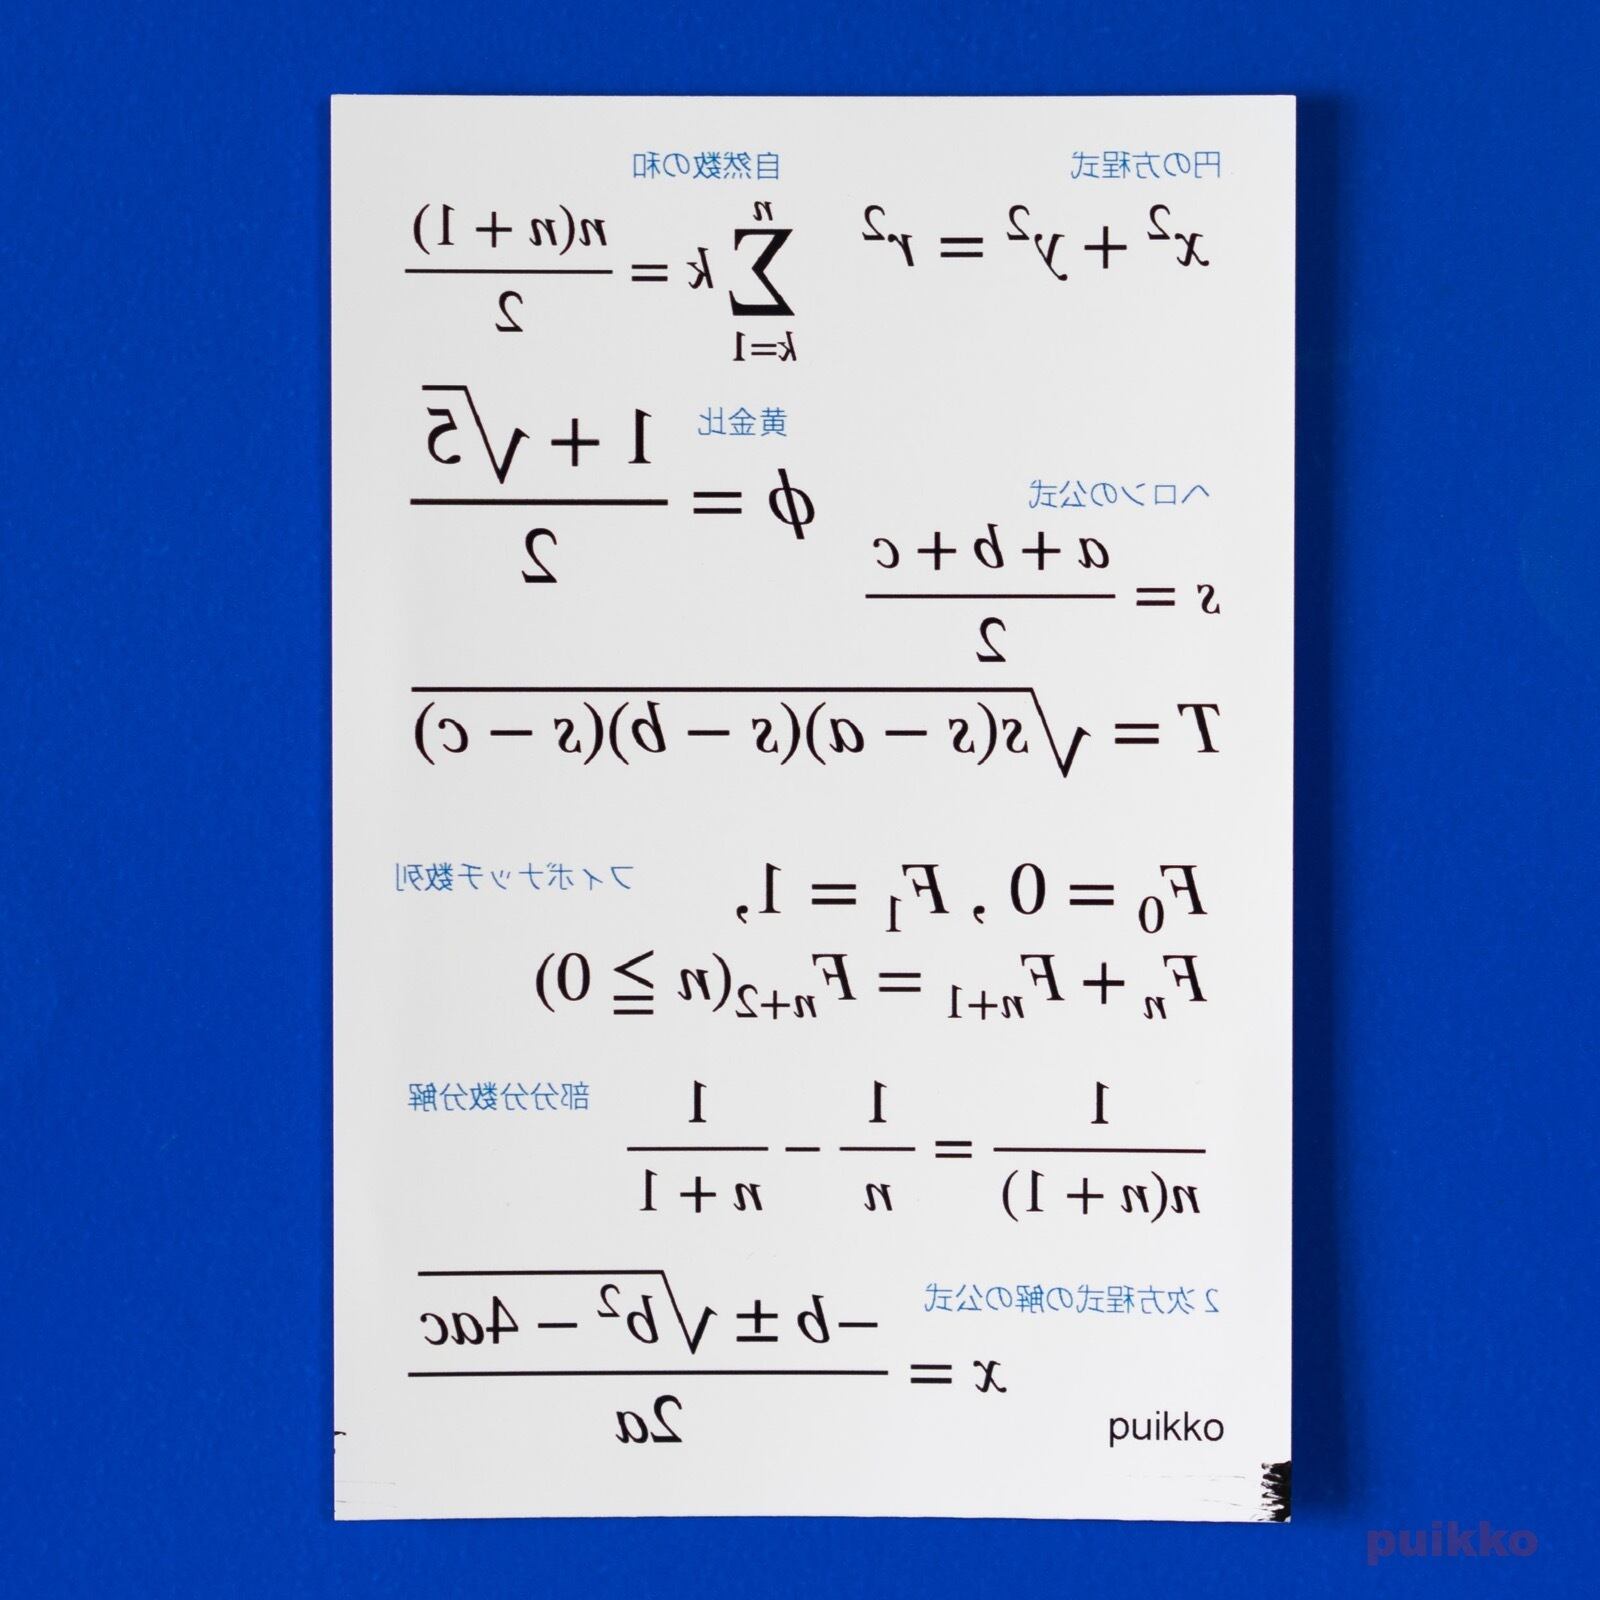 円の方程式
x² + y² = r²
自然数の和
∑_{k=1}^{n} k = n(n + 1) / 2
黄金比
ϕ = (1 + √5) / 2
ヘロンの公式
s = (a + b + c) / 2
T = √(s(s − a)(s − b)(s − c))
フィボナッチ数列
F₀ = 0 , F₁ = 1,
Fₙ + Fₙ₊₁ = Fₙ₊₂(n ≧ 0)
部分分数分解
1 / n(n + 1) = 1 / n − 1 / (n + 1)
2次方程式の解の公式
x = (−b ± √(b² − 4ac)) / 2a
puikko
puikko